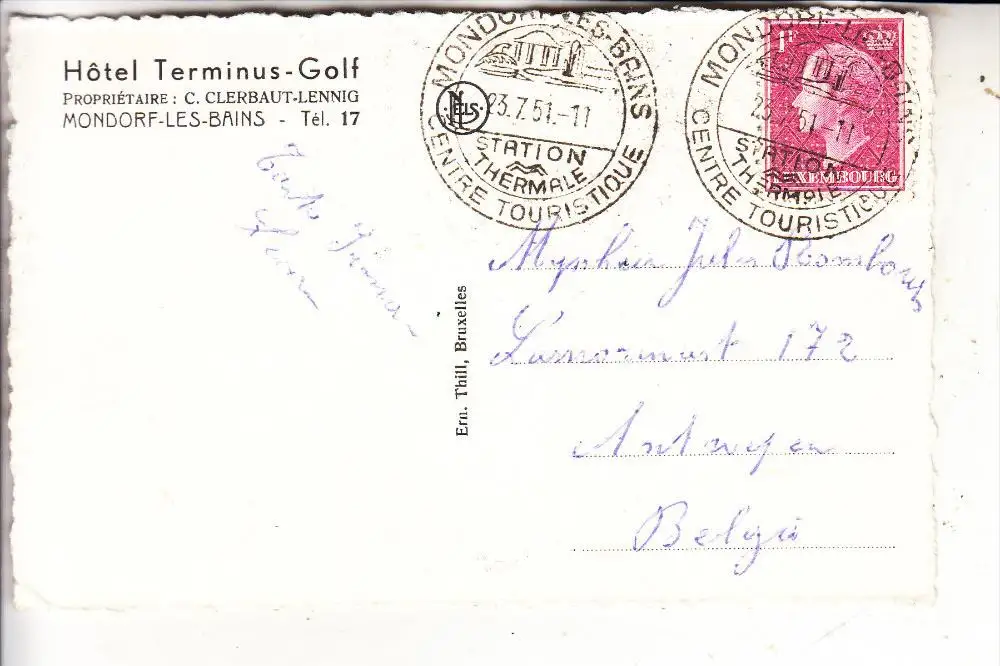 Hôtel Terminus-Golf
PROPRIÉTAIRE: C. CLERBAUT-LENNIG
MONDORF-LES-BAINS - Tél. 17
MONDORF-LES-BAINS
NELS
23.7.51.-11
STATION
THERMALE
CENTRE TOURISTIQUE
MONDORF-LES-BAINS
23.7.51.-11
STATION
THERMALE
CENTRE TOURISTIQUE
1F
LUXEMBOURG
Tante
Ern. Thill, Bruxelles
Jules
172
Antwerpen
België